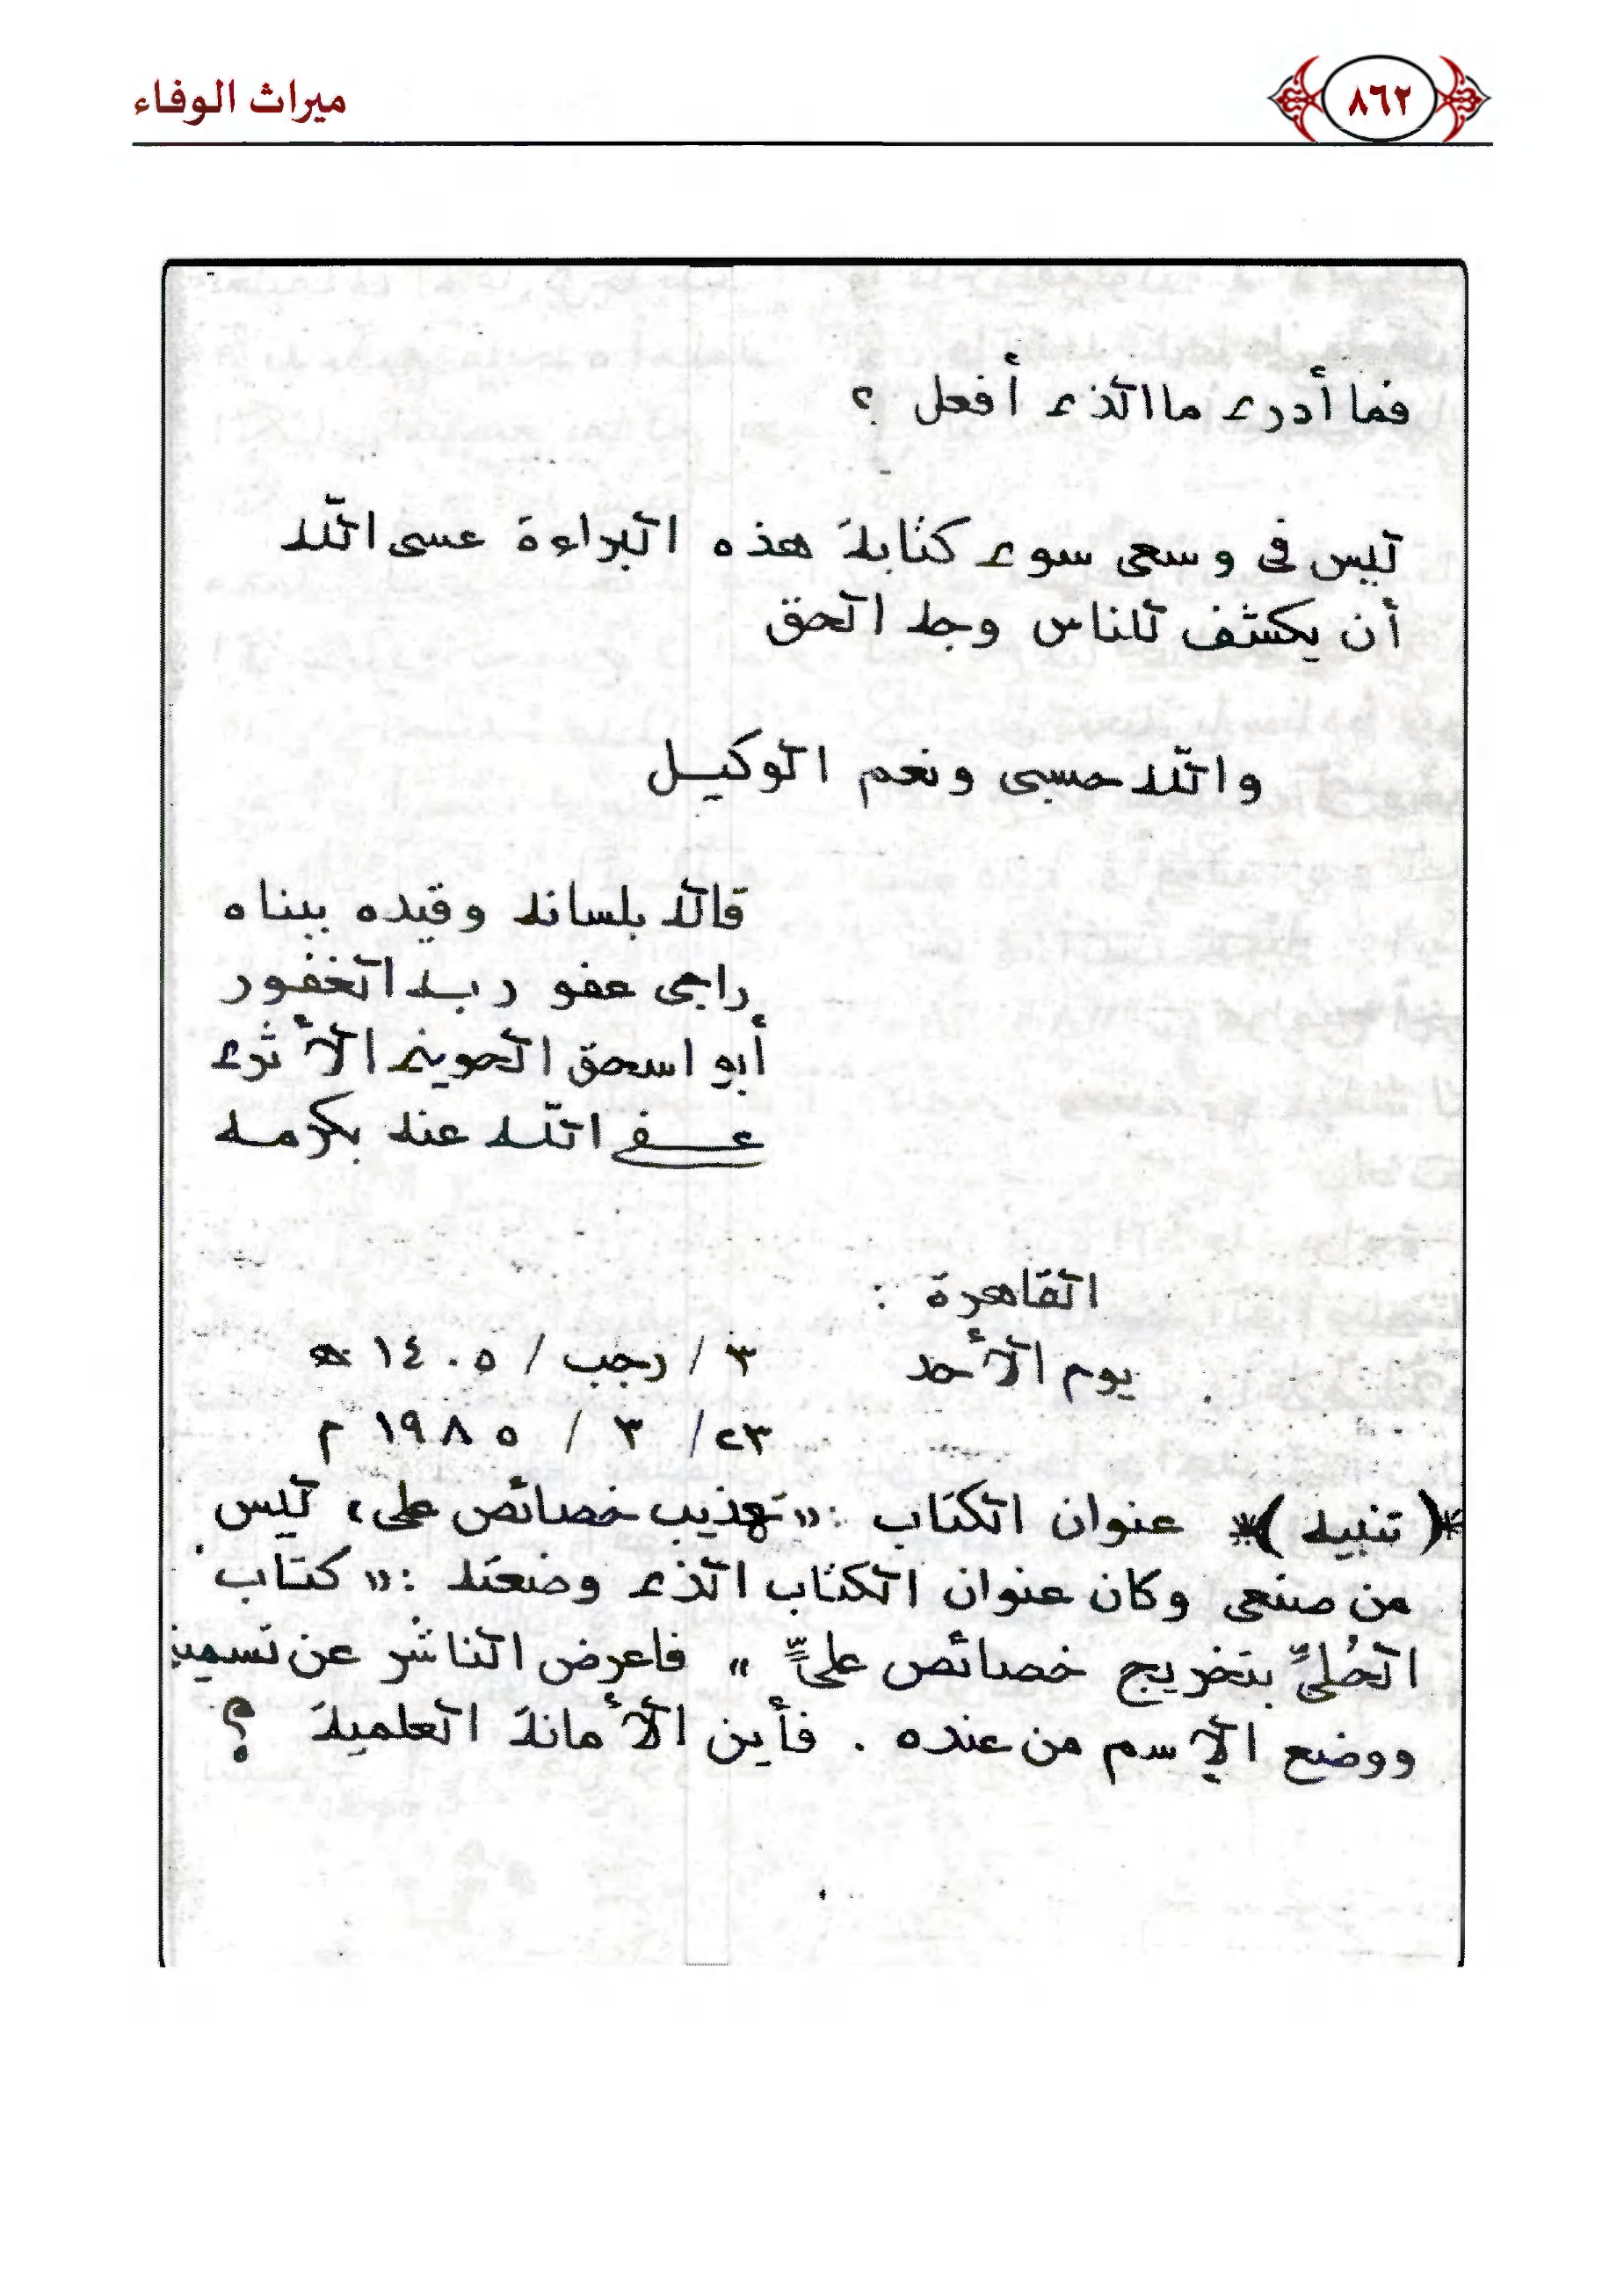 ميراث الوفاء
٨٦٢
فما أدرى ما الذى أفعل ؟
ليس فى وسعى سوى كتابة هذه البراءة عسى الله
أن يكشف للناس وجه الحق
والله حسبى ونعم الوكيـل
قاله بلسانه وقيده ببنانه
راجى عفو ربـه الغفور
أبو اسحق الحوينى الأثرى
عـفى اللـه عنه بكرمـه
القاهرة :
يوم الأحد ٣ / رجب / ١٤٠٥ هـ
٢٣ / ٣ / ١٩٨٥ م
*( تنبيه )* عنوان الكتاب : « تهذيب خصائص على » ليس
من صنعى وكان عنوان الكتاب الذى وضعته : « كتـاب
الحُلىِّ بتخريج خصائص علىٍّ » فاعرض الناشر عن تسميتى
ووضع الإسم من عنده . فأين الأمانة العلمية ؟